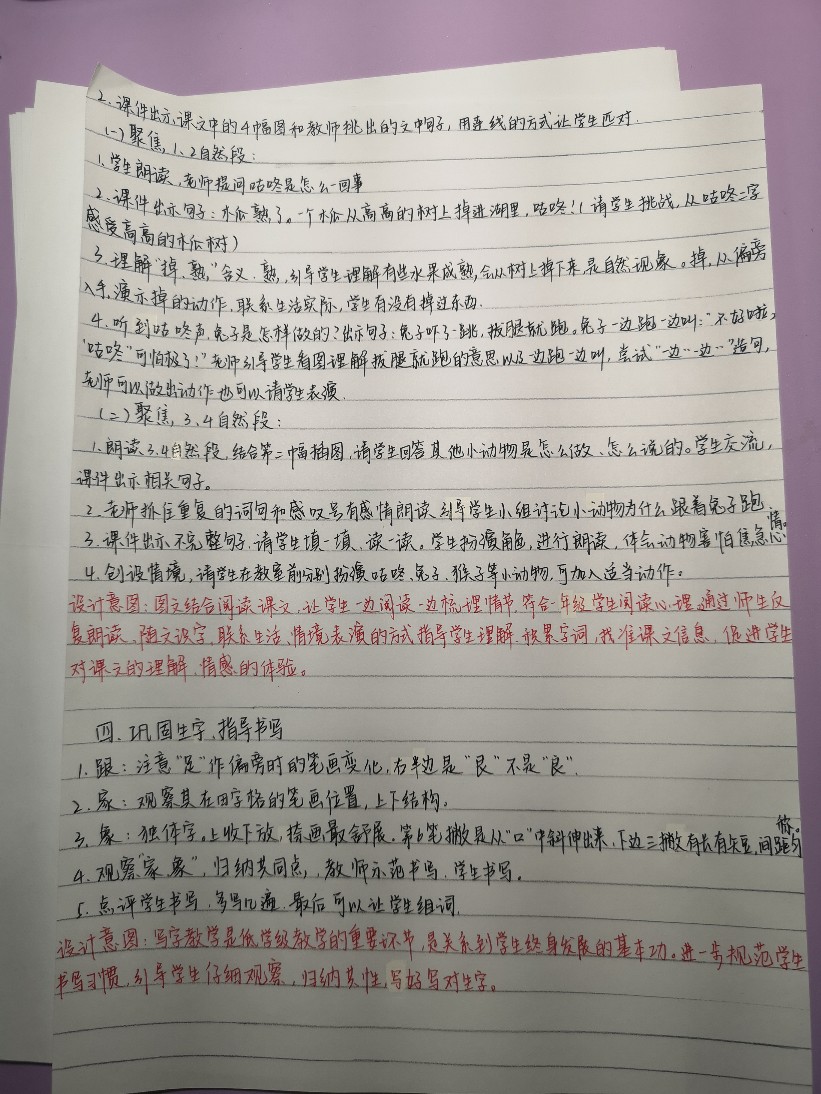 2.课件出示课文中的4幅图和教师挑出的文中句子,用连线的方式让学生匹对.
(一)聚焦1、2自然段:
1.学生朗读,老师提问咕咚是怎么一回事
2.课件出示句子:木瓜熟了。一个木瓜从高高的树上掉进湖里,咕咚!(请学生挑战,从咕咚二字
感受高高的木瓜树)
3.理解“掉、熟”含义.熟,引导学生理解有些水果成熟,会从树上掉下来,是自然现象。掉,从偏旁
入手,演示掉的动作,联系生活实际,学生有没有掉过东西.
4.听到咕咚声,兔子是怎样做的?出示句子:兔子吓了一跳,拔腿就跑。兔子一边跑一边叫:“不好啦,
“咕咚”可怕极了!”老师引导学生看图理解拔腿就跑的意思以及一边跑一边叫,尝试“一边…一边…”造句,
老师可以做出动作也可以请学生表演.
(二)聚焦,3、4自然段:
1.朗读3.4自然段,结合第二幅插图,请学生回答其他小动物是怎么做、怎么说的。学生交流,
课件出示相关句子。
2.老师抓住重复的词句和感叹号有感情朗读,引导学生小组讨论小动物为什么跟着兔子跑.
3.课件出示不完整句子,请学生填一填、读一读。学生扮演角色,进行朗读,体会动物害怕焦急心情。
4.创设情境,请学生在教室前分别扮演咕咚、兔子、猴子等小动物,可加入适当动作。
设计意图:图文结合阅读课文,让学生一边阅读一边梳理情节,符合一年级学生阅读心理,通过师生反
复朗读、随文识字、联系生活、情境表演的方式指导学生理解、积累字词,找准课文信息,促进学生
对课文的理解、情感的体验。
四、巩固生字、指导书写
1.跟:注意“足”作偏旁时的笔画变化,右半边是“艮”不是“良”.
2.家:观察其在田字格的笔画位置,上下结构。
3.象:独体字。上收下放,捺画最舒展。第6笔撇是从“口”中斜伸出来,下边三撇有长有短,间距匀称。
4.观察“家、象”,归纳共同点,教师示范书写,学生书写。
5.点评学生书写,多写几遍,最后可以让学生组词.
设计意图:写字教学是低学级教学的重要环节,是关系到学生终身发展的基本功。进一步规范学生
书写习惯,引导学生仔细观察,归纳共性,写好写对生字。